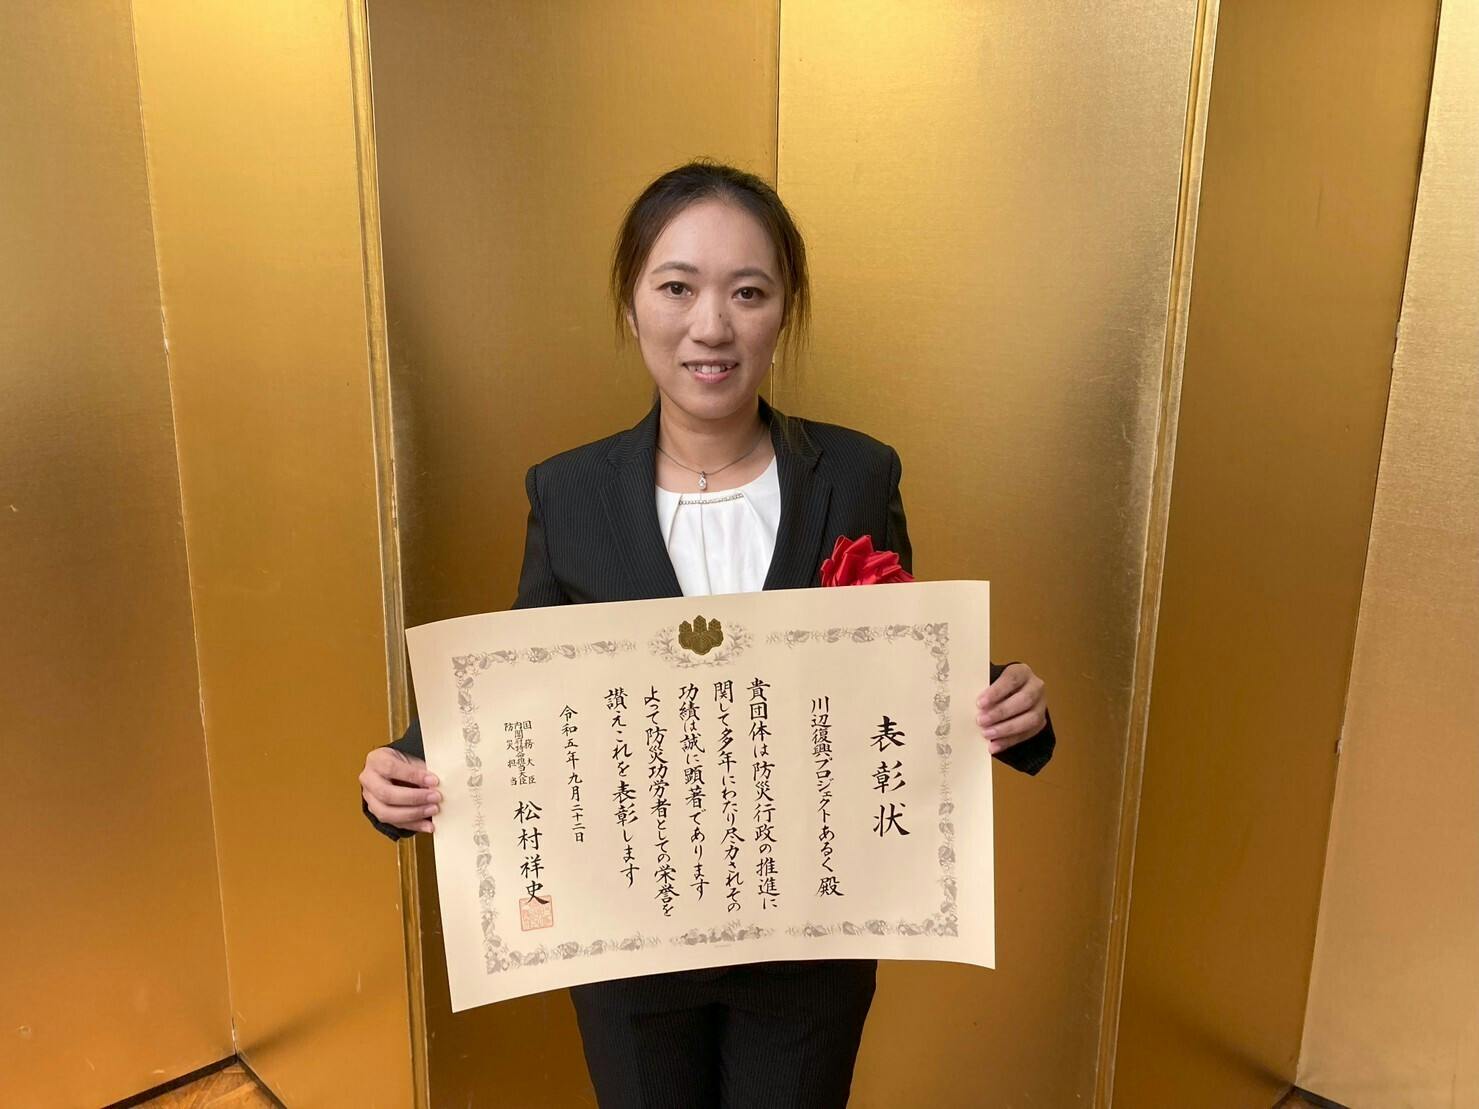 表彰状
川辺復興プロジェクトあるく殿
貴団体は防災行政の推進に
関して多年にわたり尽力されその
功績は誠に顕著であります
よって防災功労者としての栄誉を
讃えこれを表彰します
令和五年九月二十二日
国務大臣
内閣府特命担当大臣
防災担当
松村祥史